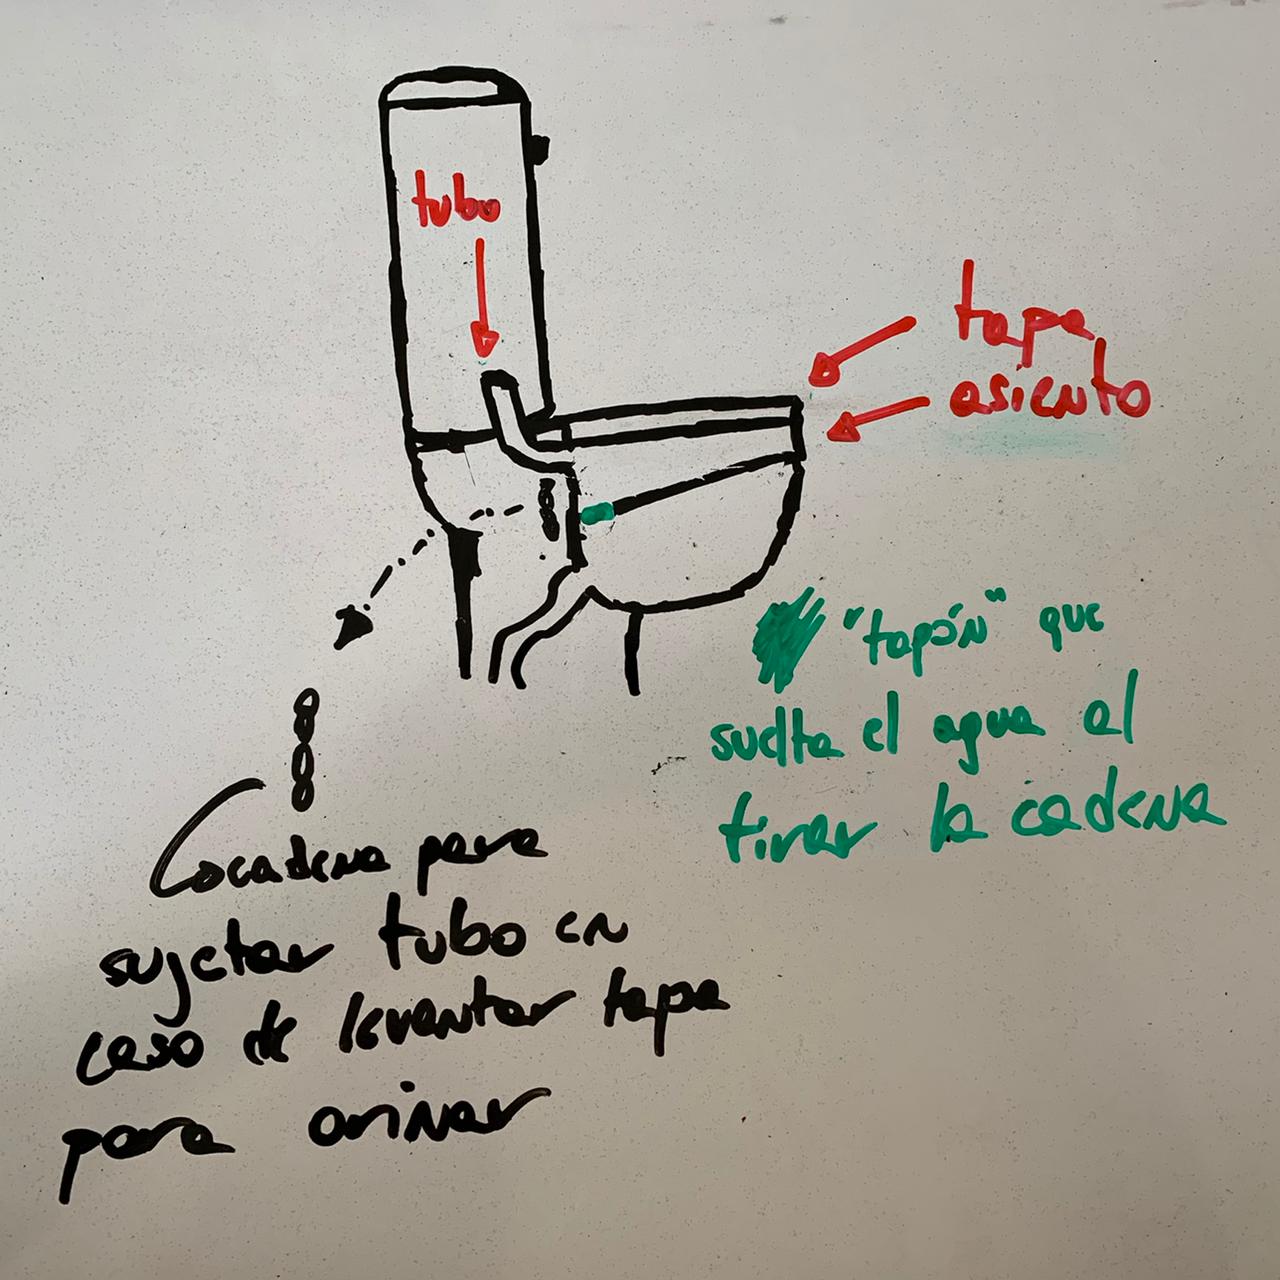 tubo
tapa
asiento
"tapón" que
suelta el agua al
tirar la cadena
cadena para
sujetar tubo en
caso de levantar tapa
para orinar